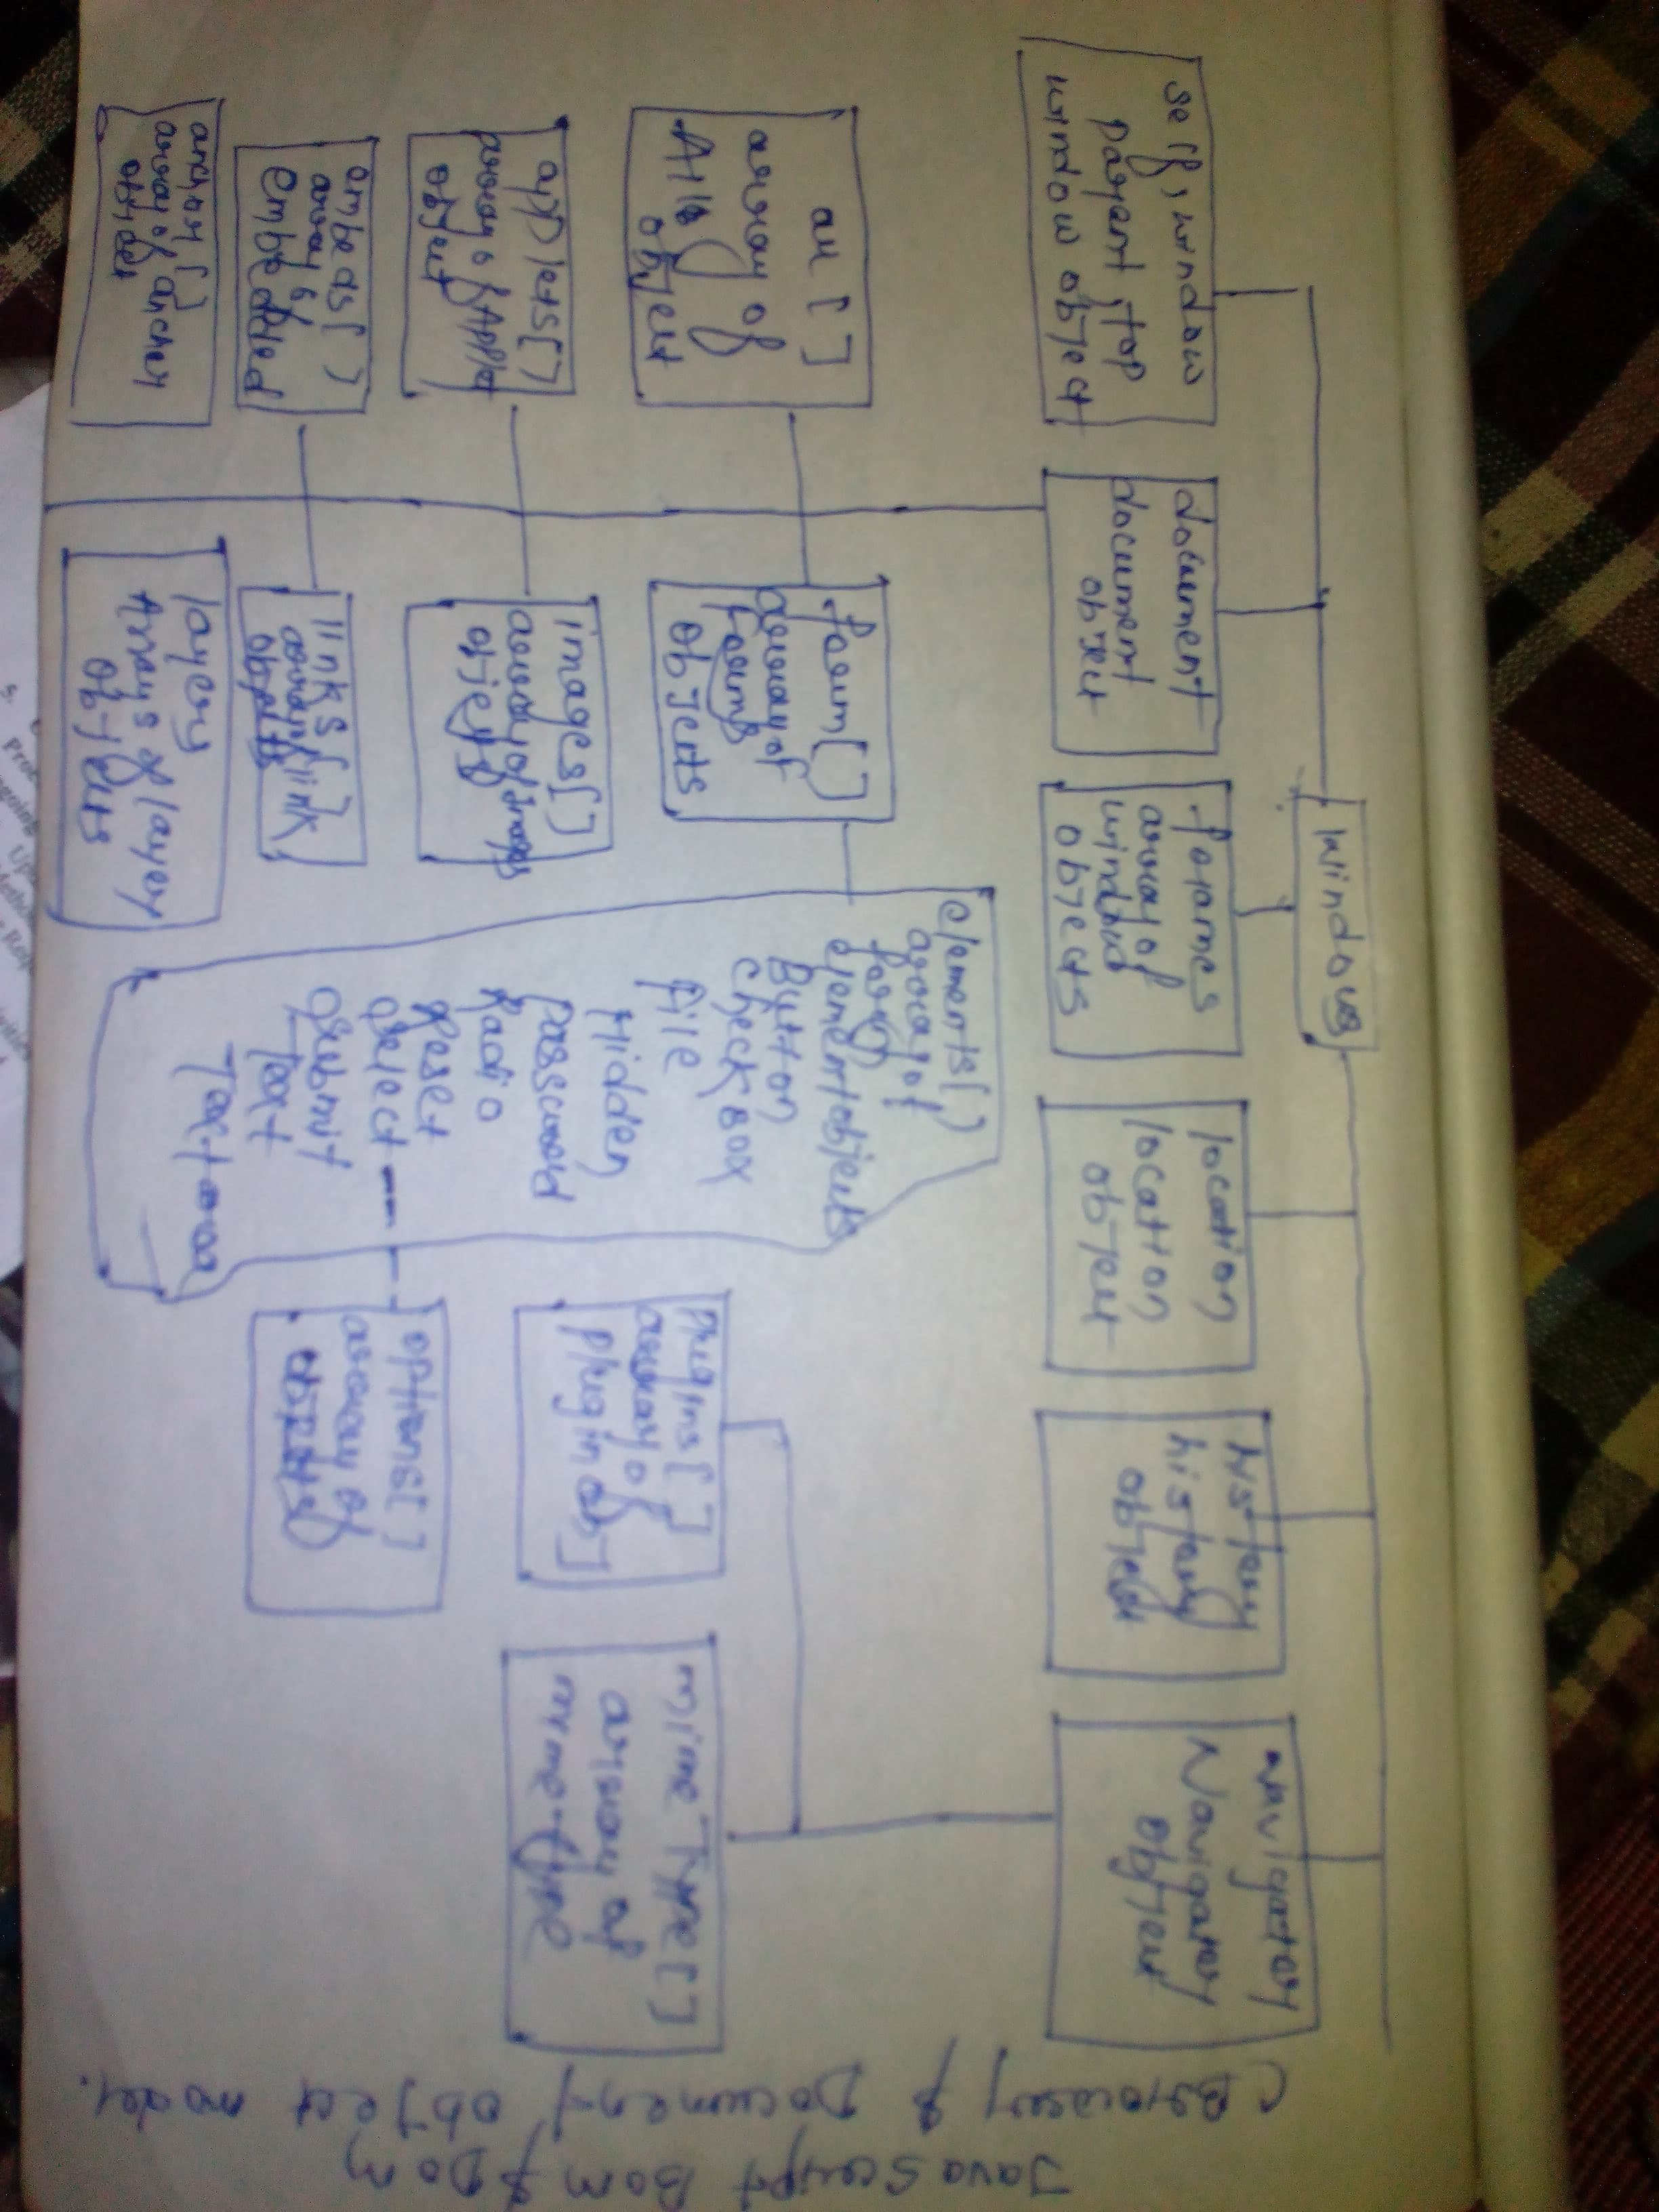 Java Script Bom & Dom
(Browser & Document object model.
windows
self, window
parent, top
window object
document
document
object
frames
array of
window
objects
location
location
object
history
history
object
navigator
Navigator
object
all [ ]
array of
Alls
object
form [ ]
array of
forms
objects
elements [ ]
array of
form
element objects
Button
check Box
file
Hidden
password
Radio
Reset
select
submit
Text
Textarea
plugins [ ]
array of
plugin obj
mime Type [ ]
array of
mime type
options [ ]
array of
objects
applets [ ]
array of Applet
object
images [ ]
array of Images
objects
embeds [ ]
array of
embedded
links [ ]
array of link
objects
anchor [ ]
array of anchor
object
layers
Arrays of layer
objects
5.